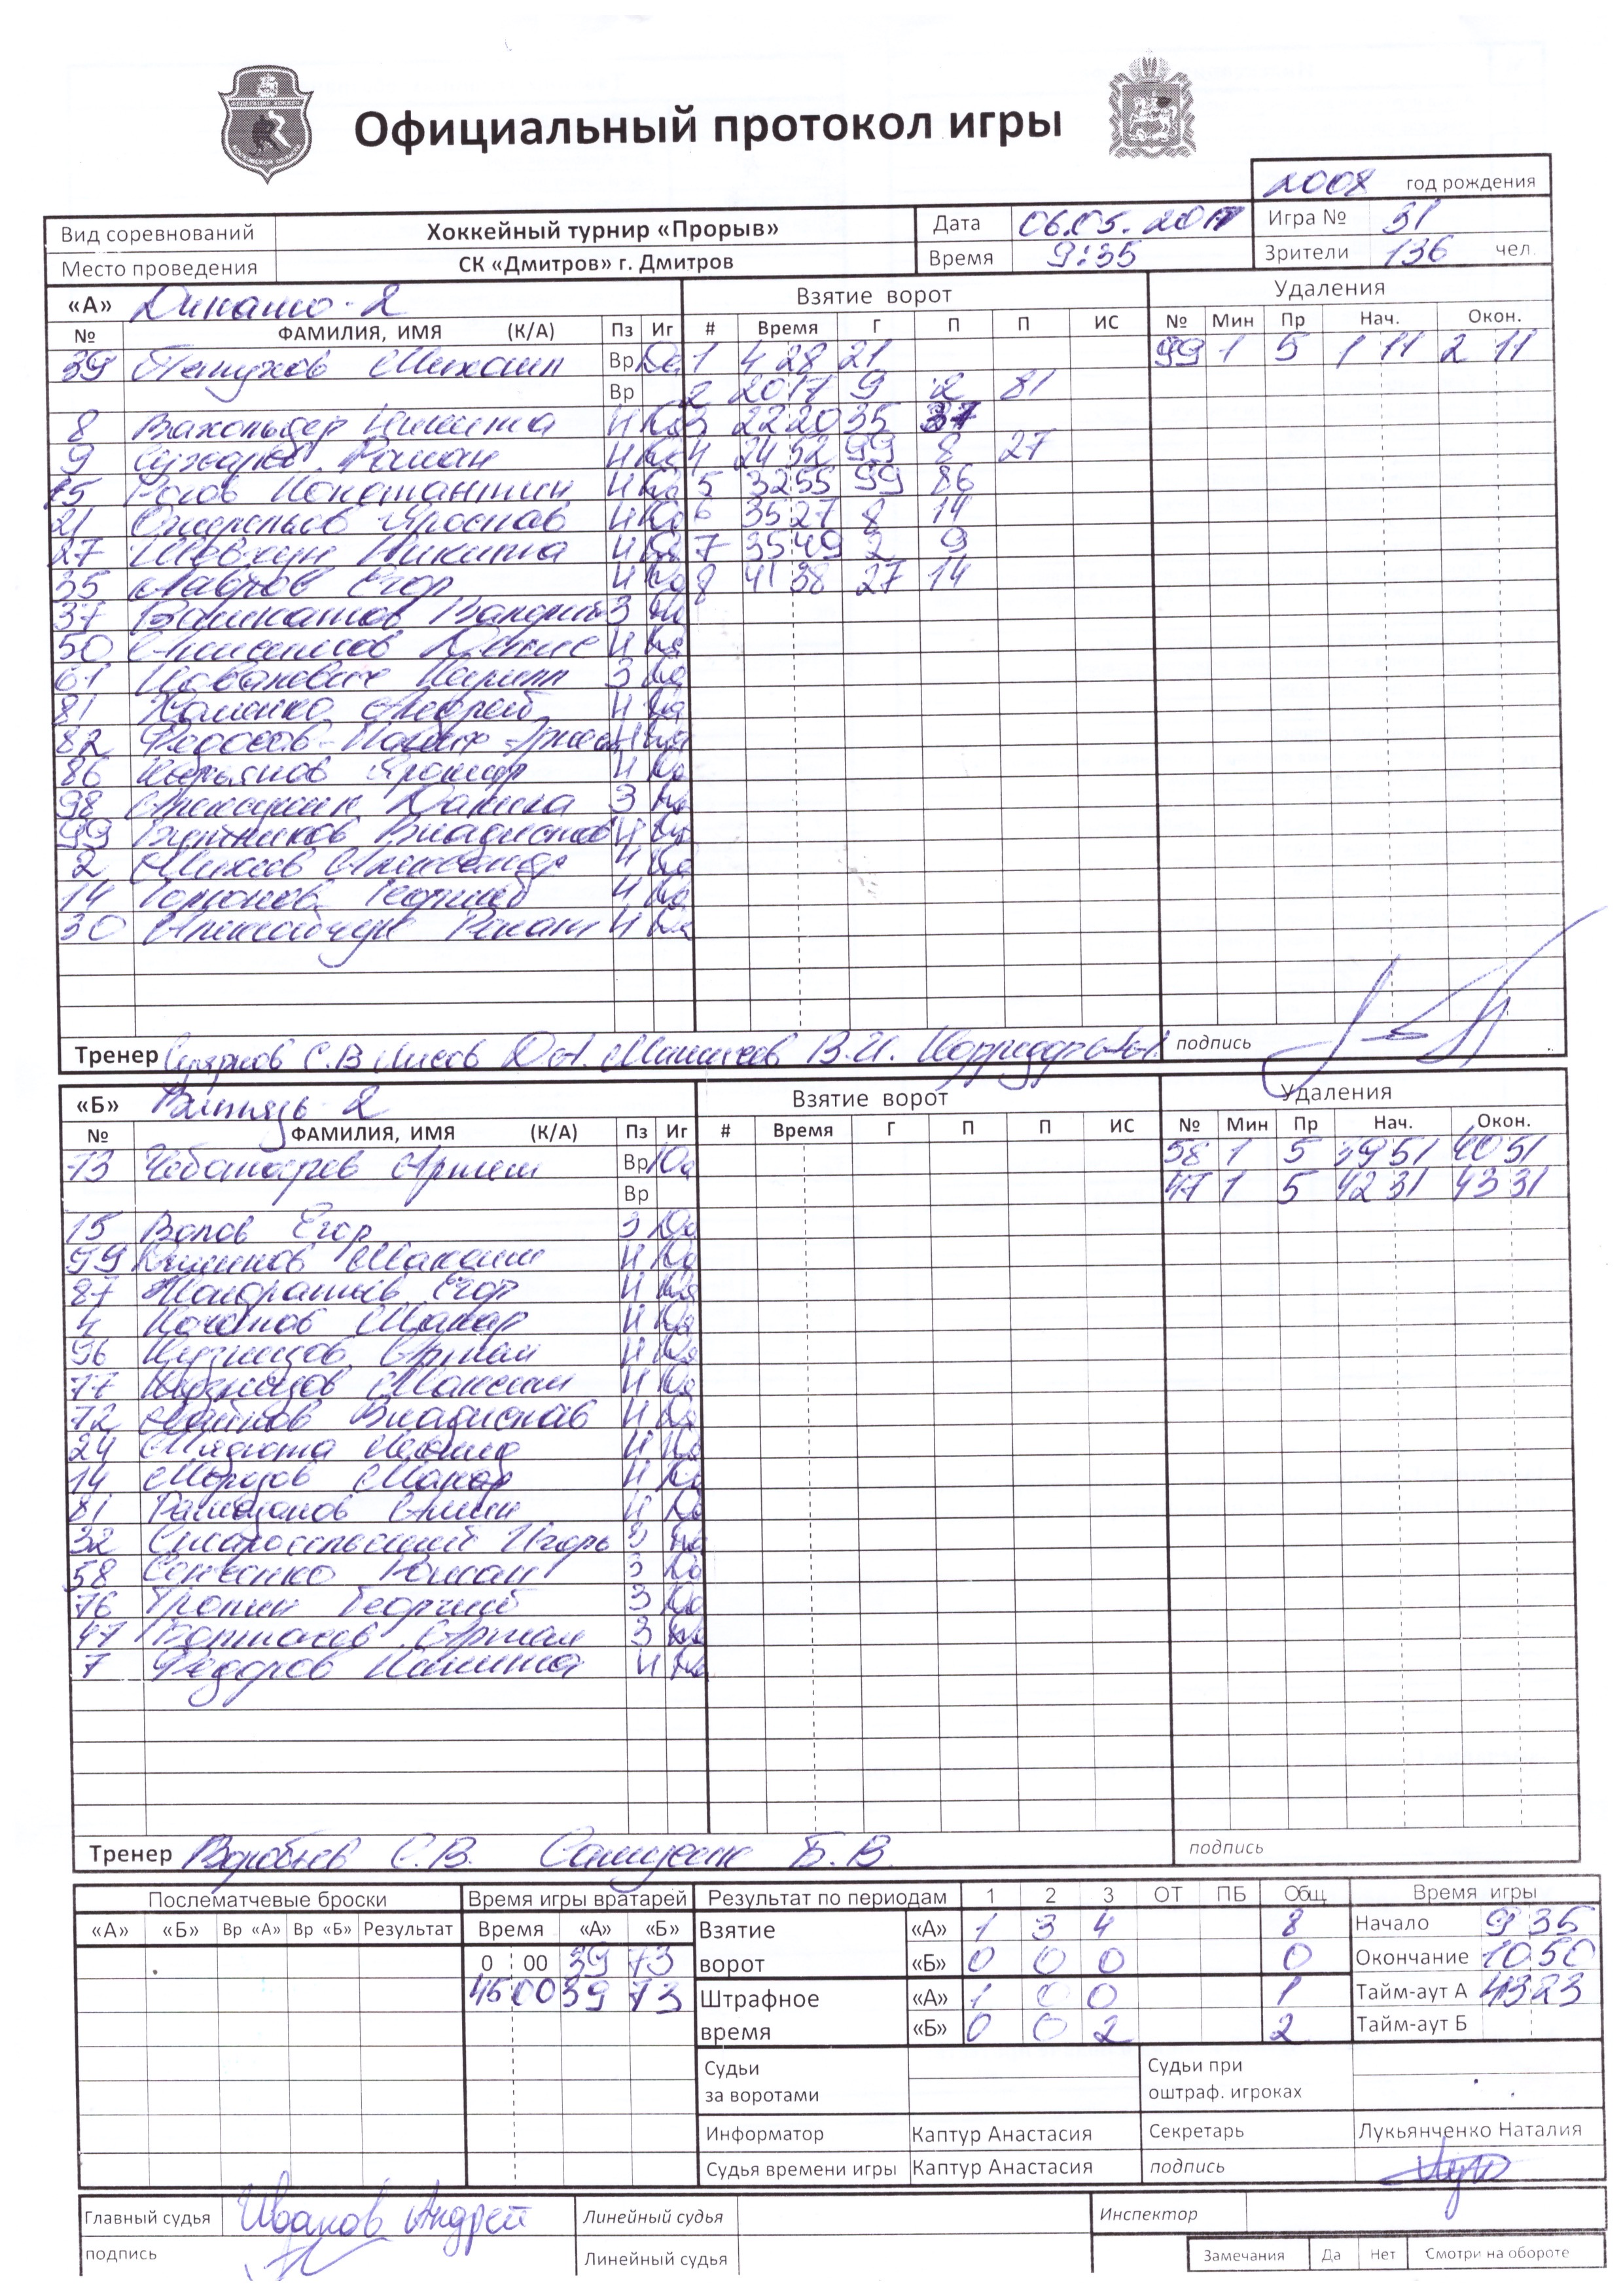 Официальный протокол игры
2008 год рождения
Вид соревнований Хоккейный турнир «Прорыв» Дата 06.05.2017 Игра № 31
Место проведения СК «Дмитров» г. Дмитров Время 9:35 Зрители 136 чел.
«А» Динамо-2 Взятие ворот Удаления
№ ФАМИЛИЯ, ИМЯ (К/А) Пз Иг # Время Г П П ИС № Мин Пр Нач. Окон.
39 Михаил Вр Да 1 4 28 21 99 1 5 1 11 2 11
Вр 2 20 17 9 2 81
8 Вахольдер Никита Н Да 3 22 20 35 37
9 Роман Н Да 4 24 52 99 8 27
15 Рогов Константин Н Да 5 32 55 99 86
21 Ожерельев Ярослав Н Да 6 35 27 8 14
27 Шовкун Никита Н Да 7 35 49 2 9
35 Лавров Егор Н Да 8 41 38 27 14
37 Валерий З Да
50 Денис Н Да
61 Кирилл З Да
81 Хоменко Андрей Н Да
82 Федосов Н Да
86 Н Да
98 Данила З Да
99 Владислав Н Да
2 Александр Н Да
14 Георгий Н Да
30 Роман Н Да
Тренер С.В. Лисов В.И. подпись
«Б» Витязь-2 Взятие ворот Удаления
№ ФАМИЛИЯ, ИМЯ (К/А) Пз Иг # Время Г П П ИС № Мин Пр Нач. Окон.
73 Чеботарев Артем Вр Да 58 1 5 39 51 40 51
Вр 47 1 5 42 31 43 31
15 Егор З Да
99 Максим Н Да
87 Кондратьев Егор Н Да
4 Макар Н Да
96 Кузнецов Н Да
77 Кузнецов Максим Н Да
72 Владислав Н Да
24 Н Да
14 Морозов Макар Н Да
81 Рамазанов Амин Н Да
32 Старосельский Игорь З Да
58 Роман З Да
76 Тропин Георгий З Да
47 З Да
7 Федоров Никита Н Да
Тренер Воробьев С.В. Б.В. подпись
Послематчевые броски Время игры вратарей Результат по периодам 1 2 3 ОТ ПБ Общ Время игры
«А» «Б» Вр «А» Вр «Б» Результат Время «А» «Б» Взятие «А» 1 3 4 8 Начало 9 35
0 00 39 73 ворот «Б» 0 0 0 0 Окончание 10 50
45 00 39 73 Штрафное «А» 1 0 0 1 Тайм-аут А 43 23
время «Б» 0 0 2 2 Тайм-аут Б
Судьи Судьи при
за воротами оштраф. игроках
Информатор Каптур Анастасия Секретарь Лукьянченко Наталия
Судья времени игры Каптур Анастасия подпись
Главный судья Иванов Андрей Линейный судья Инспектор
подпись Линейный судья Замечания Да Нет Смотри на обороте